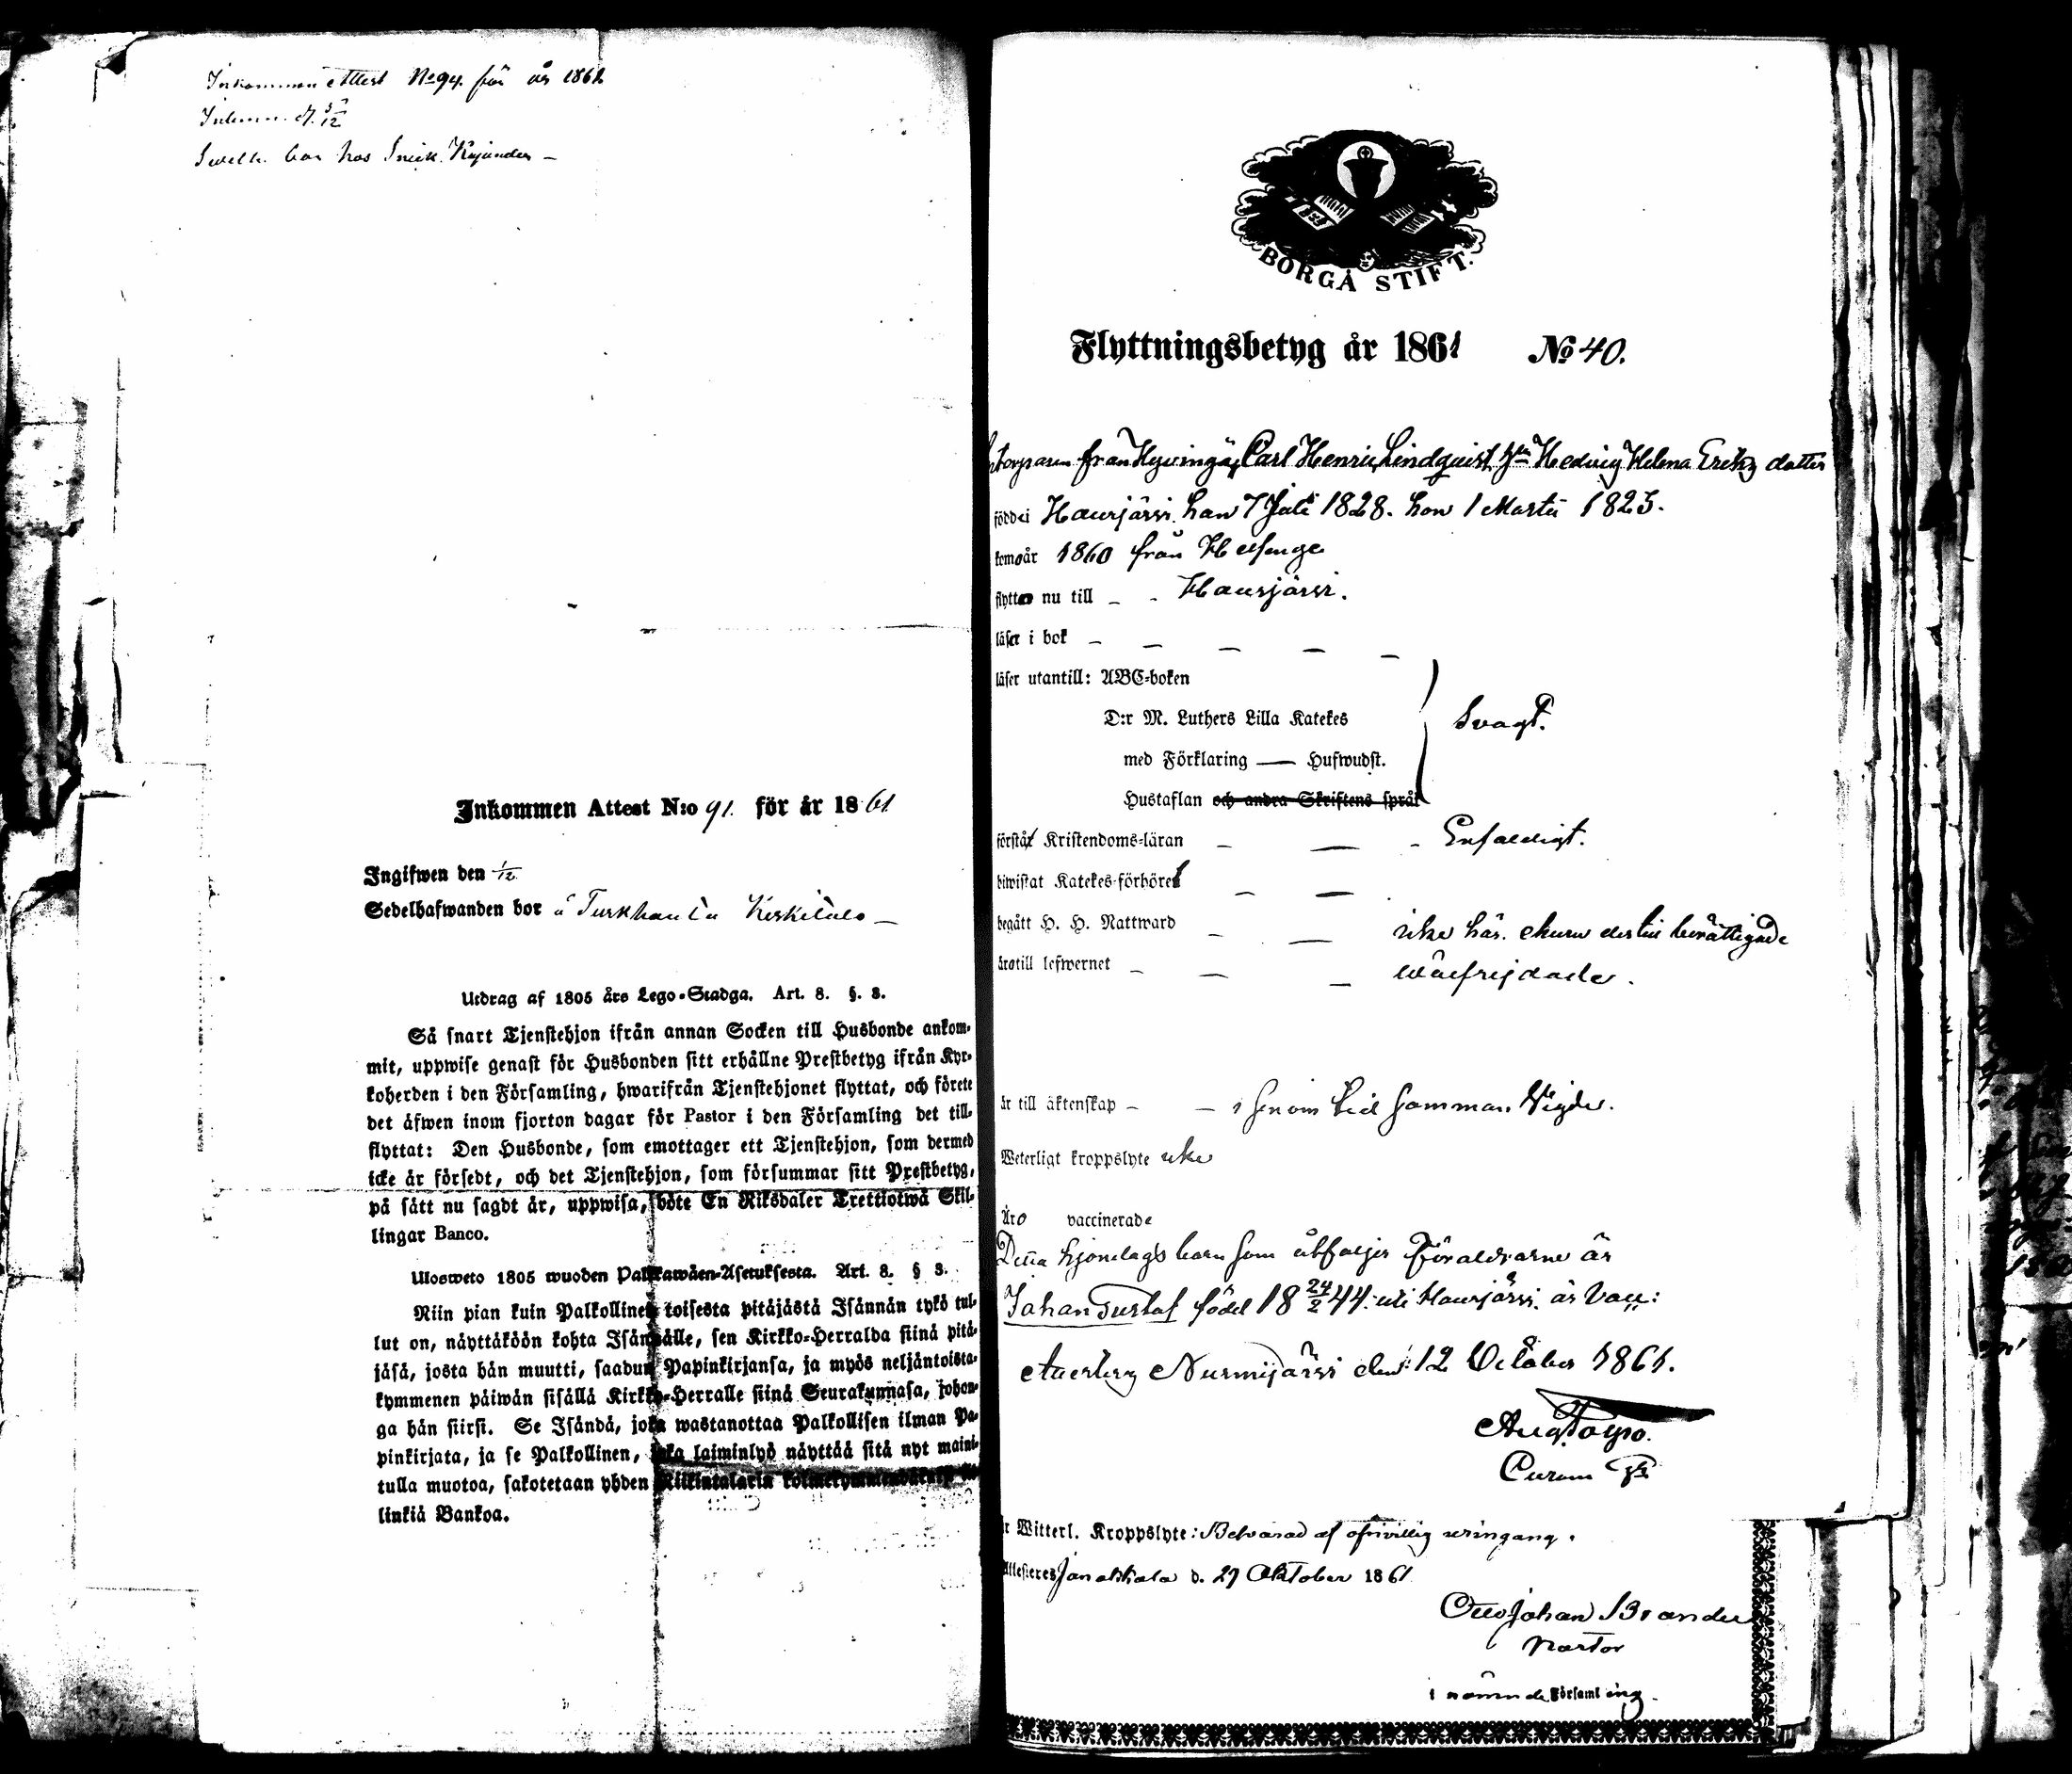 Inkommen attest No 94. för år 1861
Inlemn. d.
bor hos Snick.
Inkommen Attest N:o 91. för år 1861
Ingifwen den 1/12
Sedelhafwanden bor å Turkhauta
Utdrag af 1805 års Lego-Stadga. Art. 8. §. 3.
Så snart Tjenstehjon ifrån annan Socken till Husbonde ankom-
mit, uppwise genast för Husbonden sitt erhållne Prestbetyg ifrån Kyr-
koherden i den Församling, hwarifrån Tjenstehjonet flyttat, och förete
det äfwen inom fjorton dagar för Pastor i den Församling det till-
flyttat: Den Husbonde, som emottager ett Tjenstehjon, som dermed
icke är försedt, och det Tjenstehjon, som försummar sitt Prestbetyg,
på sätt nu sagdt är, uppwisa, böte En Riksdaler Trettiotwå Skil-
lingar Banco.
Ulosweto 1805 wuoden Palkkawäen-Asetuksesta. Art. 8. § 3.
Niin pian kuin Palkollinen toisesta pitäjästä Isännän tykö tul-
lut on, näyttäköön kohta Isännälle, sen Kirkko-Herralda siinä pitä-
jäsä, josta hän muutti, saadun Papinkirjansa, ja myös neljäntoista-
kymmenen päiwän sisällä Kirkko-Herralle siinä Seurakunnasa, johon-
ga hän siirsi. Se Isändä, joka wastanottaa Palkollisen ilman Pa-
pinkirjata, ja se Palkollinen, joka laiminlyö näyttää sitä nyt maini-
tulla muotoa, sakotetaan yhden Riikintalarin
linkiä Bankoa.
BORGÅ STIFT.
Flyttningsbetyg år 1861 No 40.
från Hyvingä, Carl Henric Lindquist Hedvig Helena Eriksdotter
född i Hausjärvi han 7 Juli 1828. hon 1 Martii 1825.
kom år 1860 från Helsinge
flytta nu till – – Hausjärvi.
läser i bok – – – – –
läser utantill: ABC-boken
D:r M. Luthers Lilla Katekes Svagt.
med Förklaring — Hufwudst.
Hustaflan och andra Skriftens språk
förstå Kristendoms-läran – — – Enfaldigt.
biwistat Katekes-förhöret – —
begått H. H. Nattward – — icke här. ehuru dertill berättigade
äro till lefwernet – — – wälfrejdade.
är till äktenskap – – genom samman Vigde.
Weterligt kroppslyte icke
Äro vaccinerade
Detta hjonelags barn som åtföljer Föräldrarne är
Johan Gustaf född 18 24/2 44. uti Hausjärvi. är Vacc:
Attesteras Nurmijärvi den 12 October 1861.
Witterl. Kroppslyte: Besvärad af ofrivillig uringång.
Attesteres Janakkala d. 29 Oktober 1861
Otto Johan Brander
Pastor
i nämnde Församling.